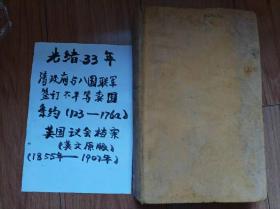 光绪33年
清政府与八国联军
签订不平等卖国
条约(123—1762)
英国议会档案
(英文原版)
(1855年—1902年)